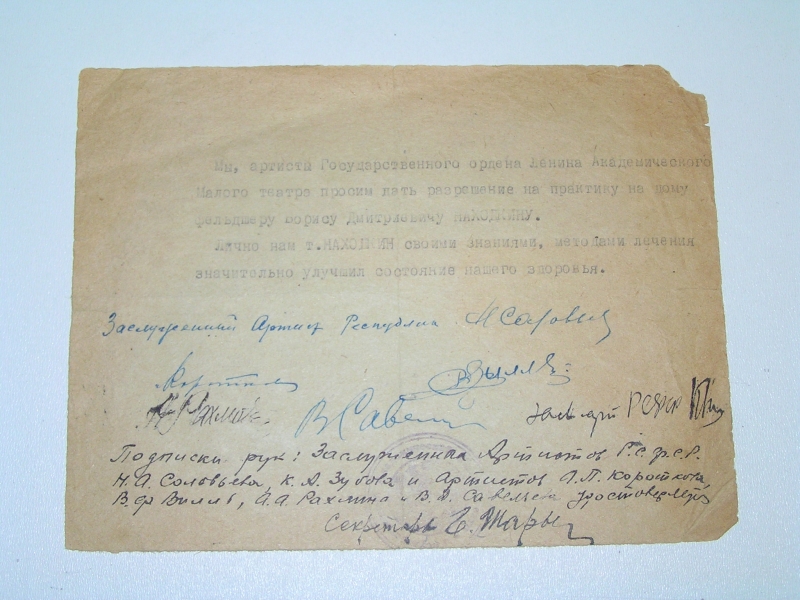 Мы, артисты Государственного ордена Ленина Академического
Малого театра просим дать разрешение на практику на дому
фельдшеру Борису Дмитриевичу НАХОДКИНУ.
Лично нам т.НАХОДКИН своими знаниями, методами лечения
значительно улучшил состояние нашего здоровья.
Заслуженный Артист Республик
Коротков
В Савель
засл арт РСФСР
Подписки рук: Заслуженных Артистов Р.С.Ф.С.Р.
Н.А. Соловьева, К.А. Зубова и Артистов П. Короткова,
В.Ф Вилль, А.А. Рахмина и В. Савельева удостоверяю
Секретарь